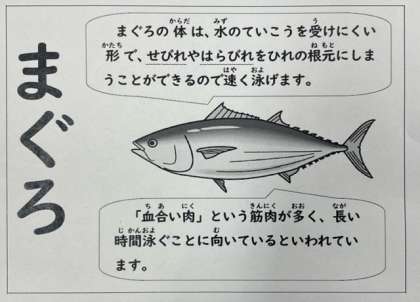 まぐろ
まぐろの体は、水のていこうを受けにくい
形で、せびれやはらびれをひれの根元にしま
うことができるので速く泳げます。
「血合い肉」という筋肉が多く、長い
時間泳ぐことに向いているといわれてい
ます。